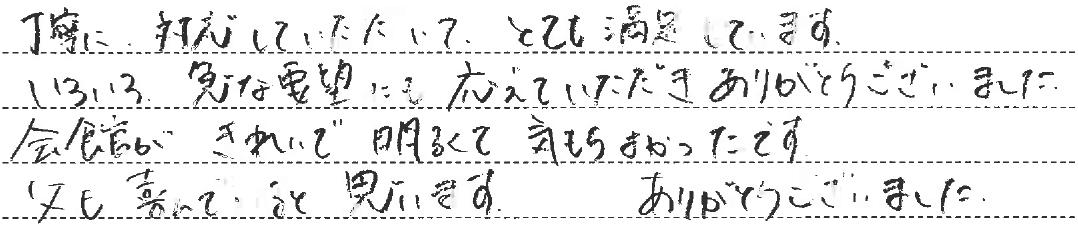 丁寧に、対応していただいて、とても満足しています。
いろいろ、急な要望にも応えていただきありがとうございました。
会館がきれいで明るくて気もちよかったです。
父も喜んでいると思います。 ありがとうございました。